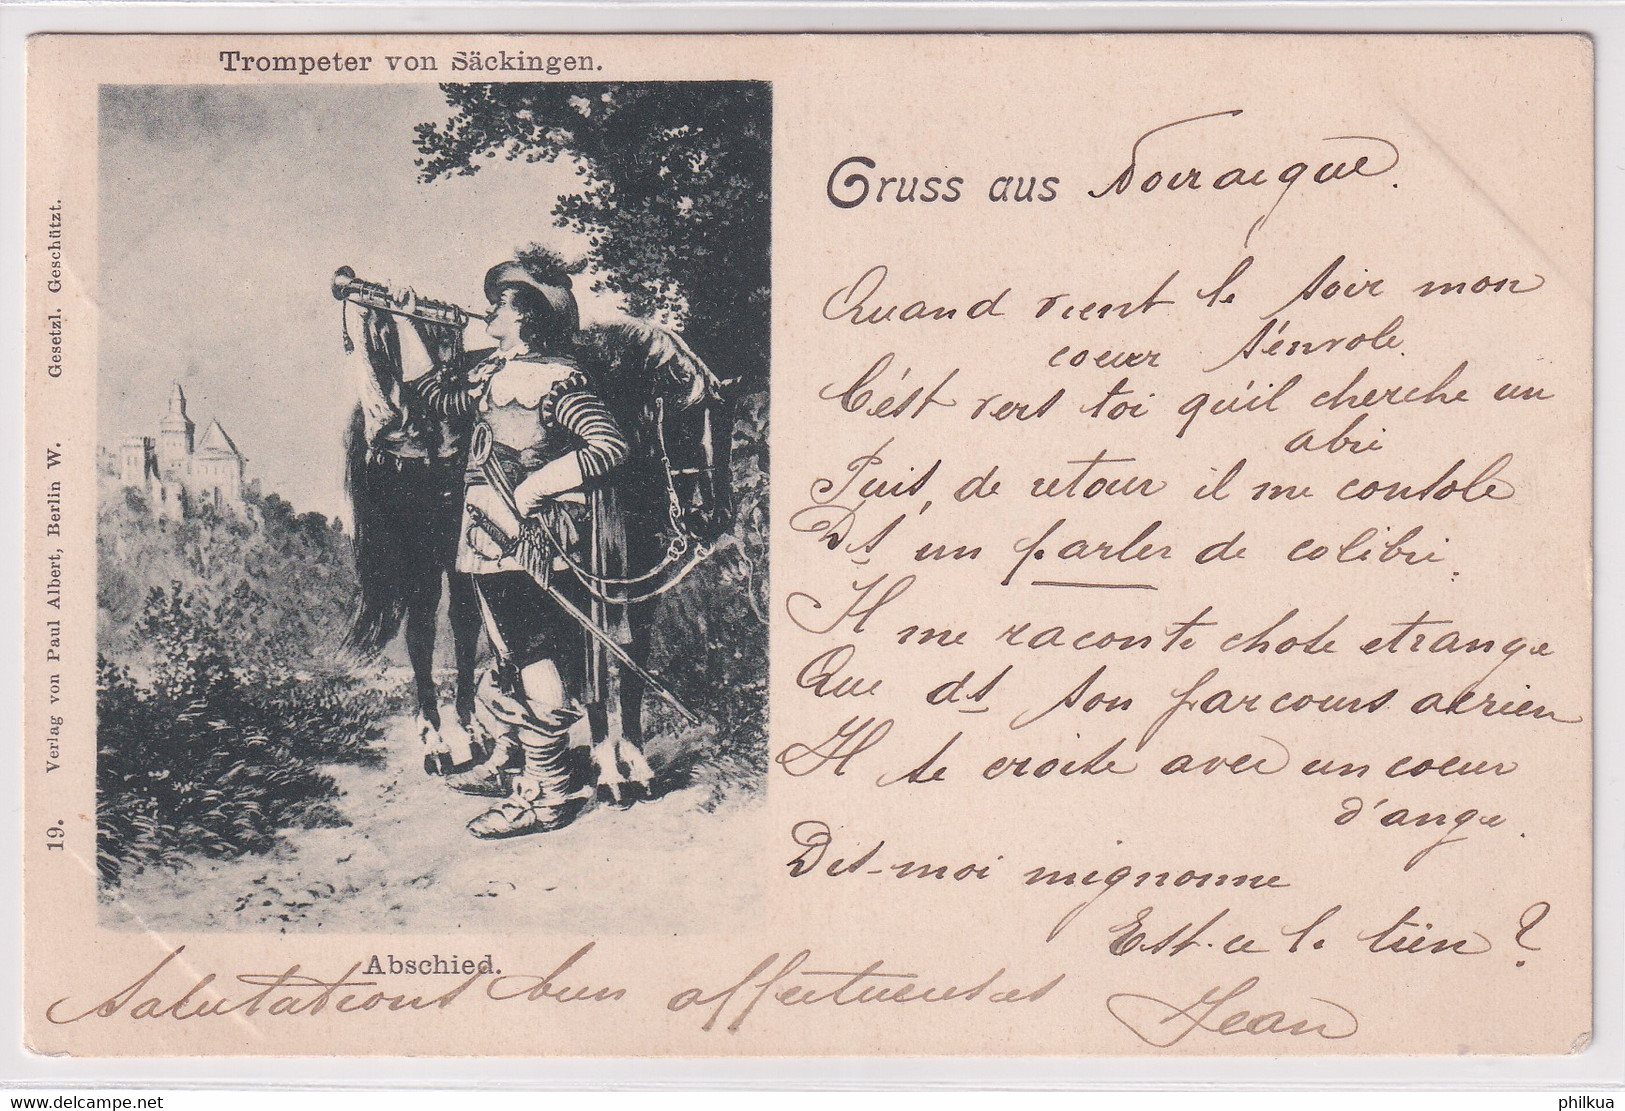 Trompeter von Säckingen.
Gesetzl. Geschützt.
Verlag von Paul Albert, Berlin W.
19.
Abschied.
Gruss aus Noiraigue.
Quand vient le soir mon
coeur s'envole.
C'est vers toi qu'il cherche un
abri
Puis, de retour il me console
Ds un parler de colibri.
Il me raconte chose etrange
Que ds son parcours aerien
Il te croise avec un coeur
d'ange.
Dis-moi mignonne
Est-ce le tien ?
Salutations bien affectueuses
Jean
delcampe.net
philkua